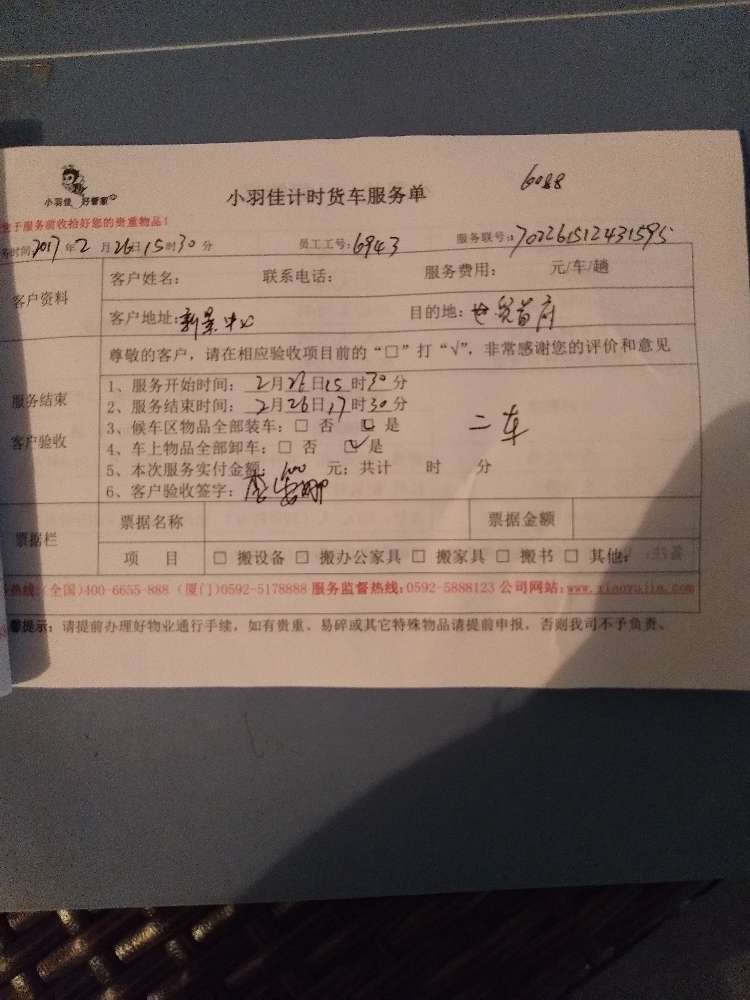 6088
小羽佳 好管家
小羽佳计时货车服务单
于服务前收拾好您的贵重物品！
时间:2017年2月26日15时30分 员工工号:6943 服务联号:702261512431595
客户资料
客户姓名： 联系电话： 服务费用： 元/车/趟
客户地址:新景中心 目的地:世贸首府
尊敬的客户，请在相应验收项目前的“□”打“√”，非常感谢您的评价和意见
服务结束
客户验收
1、服务开始时间：2月26日15时30分
2、服务结束时间：2月26日17时30分
3、候车区物品全部装车：□ 否 ☑ 是
4、车上物品全部卸车：□ 否 ☑是
二车
5、本次服务实付金额：100元；共计 时 分
6、客户验收签字：
票据栏
票据名称 票据金额
项 目 □ 搬设备 □ 搬办公家具 □ 搬家具 □ 搬书 □ 其他：
热线：(全国)400-6655-888 (厦门)0592-5178888 服务监督热线：0592-5888123 公司网站：www.xiaoyujia.com
馨提示：请提前办理好物业通行手续，如有贵重、易碎或其它特殊物品请提前申报，否则我司不予负责、